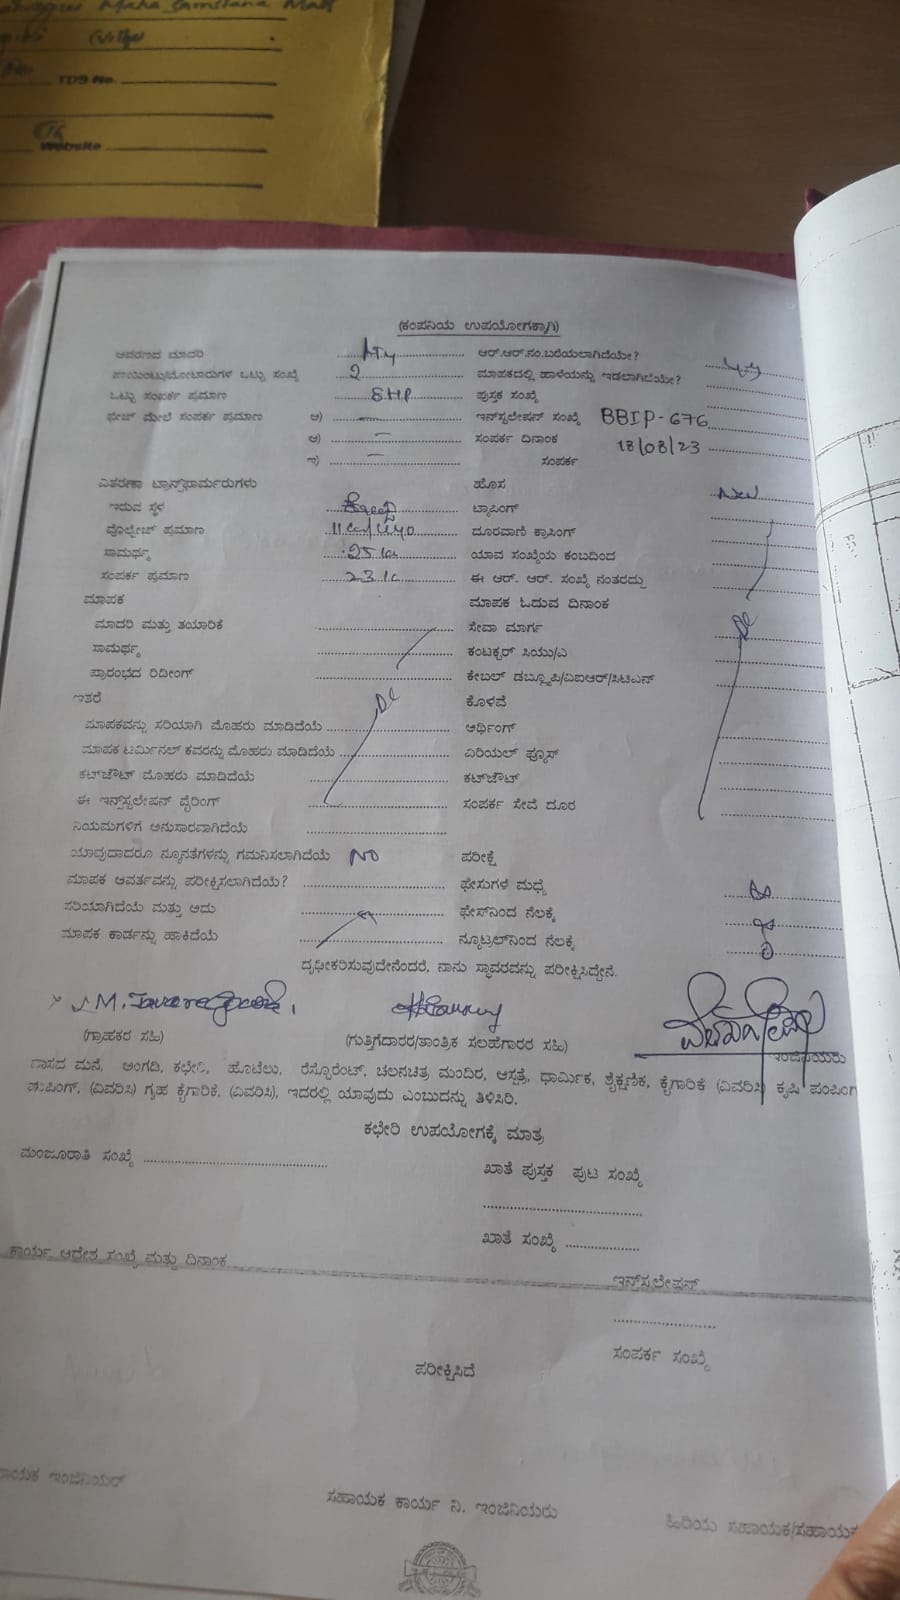 TDS No.
Website
(ಕಂಪನಿಯ ಉಪಯೋಗಕ್ಕಾಗಿ)
ಆವರಣದ ಮಾದರಿ ಆರ್.ಆರ್.ನಂ.ಬರೆಯಲಾಗಿದೆಯೇ?
ಪಾಯಿಂಟು/ಮೋಟಾರುಗಳ ಒಟ್ಟು ಸಂಖ್ಯೆ 2 ಮಾಪಕದಲ್ಲಿ ಹಾಳೆಯನ್ನು ಇಡಲಾಗಿದೆಯೇ?
ಒಟ್ಟು ಸಂಪರ್ಕ ಪ್ರಮಾಣ 5 HP ಪುಸ್ತಕ ಸಂಖ್ಯೆ
ಫೇಜ್ ಮೇಲೆ ಸಂಪರ್ಕ ಪ್ರಮಾಣ ಅ) ಇನ್‌ಸ್ಟಲೇಷನ್ ಸಂಖ್ಯೆ BBIP-676
ಆ) ಸಂಪರ್ಕ ದಿನಾಂಕ 18/08/23
ಇ) ಸಂಪರ್ಕ
ವಿತರಣಾ ಟ್ರಾನ್ಸ್‌ಫಾರ್ಮರುಗಳು ಹೊಸ
ಇರುವ ಸ್ಥಳ ಟ್ಯಾಪಿಂಗ್
ವೊಲ್ಟೇಜ್ ಪ್ರಮಾಣ ದೂರವಾಣಿ ಕ್ರಾಸಿಂಗ್
ಸಾಮರ್ಥ್ಯ ಯಾವ ಸಂಖ್ಯೆಯ ಕಂಬದಿಂದ
ಸಂಪರ್ಕ ಪ್ರಮಾಣ ಈ ಆರ್. ಆರ್. ಸಂಖ್ಯೆ ನಂತರದ್ದು
ಮಾಪಕ ಮಾಪಕ ಓದುವ ದಿನಾಂಕ
ಮಾದರಿ ಮತ್ತು ತಯಾರಿಕೆ ಸೇವಾ ಮಾರ್ಗ
ಸಾಮರ್ಥ್ಯ ಕಂಟಕ್ಟರ್ ಸಿಯು/ಎ
ಪ್ರಾರಂಭದ ರಿಡೀಂಗ್ ಕೇಬಲ್ ಡಬ್ಲ್ಯೂಪಿ/ವಿಐಆರ್/ಸಿಟಿಎಸ್
ಇತರೆ ಕೊಳವೆ
ಮಾಪಕವನ್ನು ಸರಿಯಾಗಿ ಮೊಹರು ಮಾಡಿದೆಯೆ ಆರ್ಥಿಂಗ್
ಮಾಪಕ ಟರ್ಮಿನಲ್ ಕವರನ್ನು ಮೊಹರು ಮಾಡಿದೆಯೆ ಏರಿಯಲ್ ಫ್ಯೂಸ್
ಕಟ್‌ಔಟ್ ಮೊಹರು ಮಾಡಿದೆಯೆ ಕಟ್‌ಔಟ್
ಈ ಇನ್ಸ್‌ಟಲೇಷನ್ ವೈರಿಂಗ್ ಸಂಪರ್ಕ ಸೇವೆ ದೂರ
ನಿಯಮಗಳಿಗೆ ಅನುಸಾರವಾಗಿದೆಯೆ
ಯಾವುದಾದರೂ ನ್ಯೂನತೆಗಳನ್ನು ಗಮನಿಸಲಾಗಿದೆಯೆ NO ಪರೀಕ್ಷೆ
ಮಾಪಕ ಆವರ್ತವನ್ನು ಪರೀಕ್ಷಿಸಲಾಗಿದೆಯೆ? ಫೇಸುಗಳ ಮಧ್ಯೆ
ಸರಿಯಾಗಿದೆಯೆ ಮತ್ತು ಅದು ಫೇಸ್‌ನಿಂದ ನೆಲಕ್ಕೆ
ಮಾಪಕ ಕಾರ್ಡನ್ನು ಹಾಕಿದೆಯೆ ನ್ಯೂಟ್ರಲ್‌ನಿಂದ ನೆಲಕ್ಕೆ
ದೃಢೀಕರಿಸುವುದೇನೆಂದರೆ, ನಾನು ಸ್ಥಾವರವನ್ನು ಪರೀಕ್ಷಿಸಿದ್ದೇನೆ.
(ಗ್ರಾಹಕರ ಸಹಿ) (ಗುತ್ತಿಗೆದಾರರ/ತಾಂತ್ರಿಕ ಸಲಹೆಗಾರರ ಸಹಿ) ಇಂಜಿನಿಯರು
ವಾಸದ ಮನೆ, ಅಂಗಡಿ, ಕಛೇರಿ, ಹೊಟೆಲು, ರೆಸ್ಟೋರೆಂಟ್, ಚಲನಚಿತ್ರ ಮಂದಿರ, ಆಸ್ಪತ್ರೆ, ಧಾರ್ಮಿಕ, ಶೈಕ್ಷಣಿಕ, ಕೈಗಾರಿಕೆ (ವಿವರಿಸಿ) ಕೃಷಿ ಪಂಪಿಂಗ
ಪಂಪಿಂಗ್, (ವಿವರಿಸಿ) ಗೃಹ ಕೈಗಾರಿಕೆ, (ವಿವರಿಸಿ), ಇದರಲ್ಲಿ ಯಾವುದು ಎಂಬುದನ್ನು ತಿಳಿಸಿರಿ.
ಕಛೇರಿ ಉಪಯೋಗಕ್ಕೆ ಮಾತ್ರ
ಮಂಜೂರಾತಿ ಸಂಖ್ಯೆ ಖಾತೆ ಪುಸ್ತಕ ಪುಟ ಸಂಖ್ಯೆ
ಖಾತೆ ಸಂಖ್ಯೆ
ಕಾರ್ಯ ಆದೇಶ ಸಂಖ್ಯೆ ಮತ್ತು ದಿನಾಂಕ
ಇನ್‌ಸ್ಟಲೇಷನ್
ಸಂಪರ್ಕ ಸಂಖ್ಯೆ
ಪರೀಕ್ಷಿಸಿದೆ
ಇಂಜಿನಿಯರ್ ಸಹಾಯಕ ಕಾರ್ಯ ನಿ. ಇಂಜಿನಿಯರು ಹಿರಿಯ ಸಹಾಯಕ/ಸಹಾಯಕ